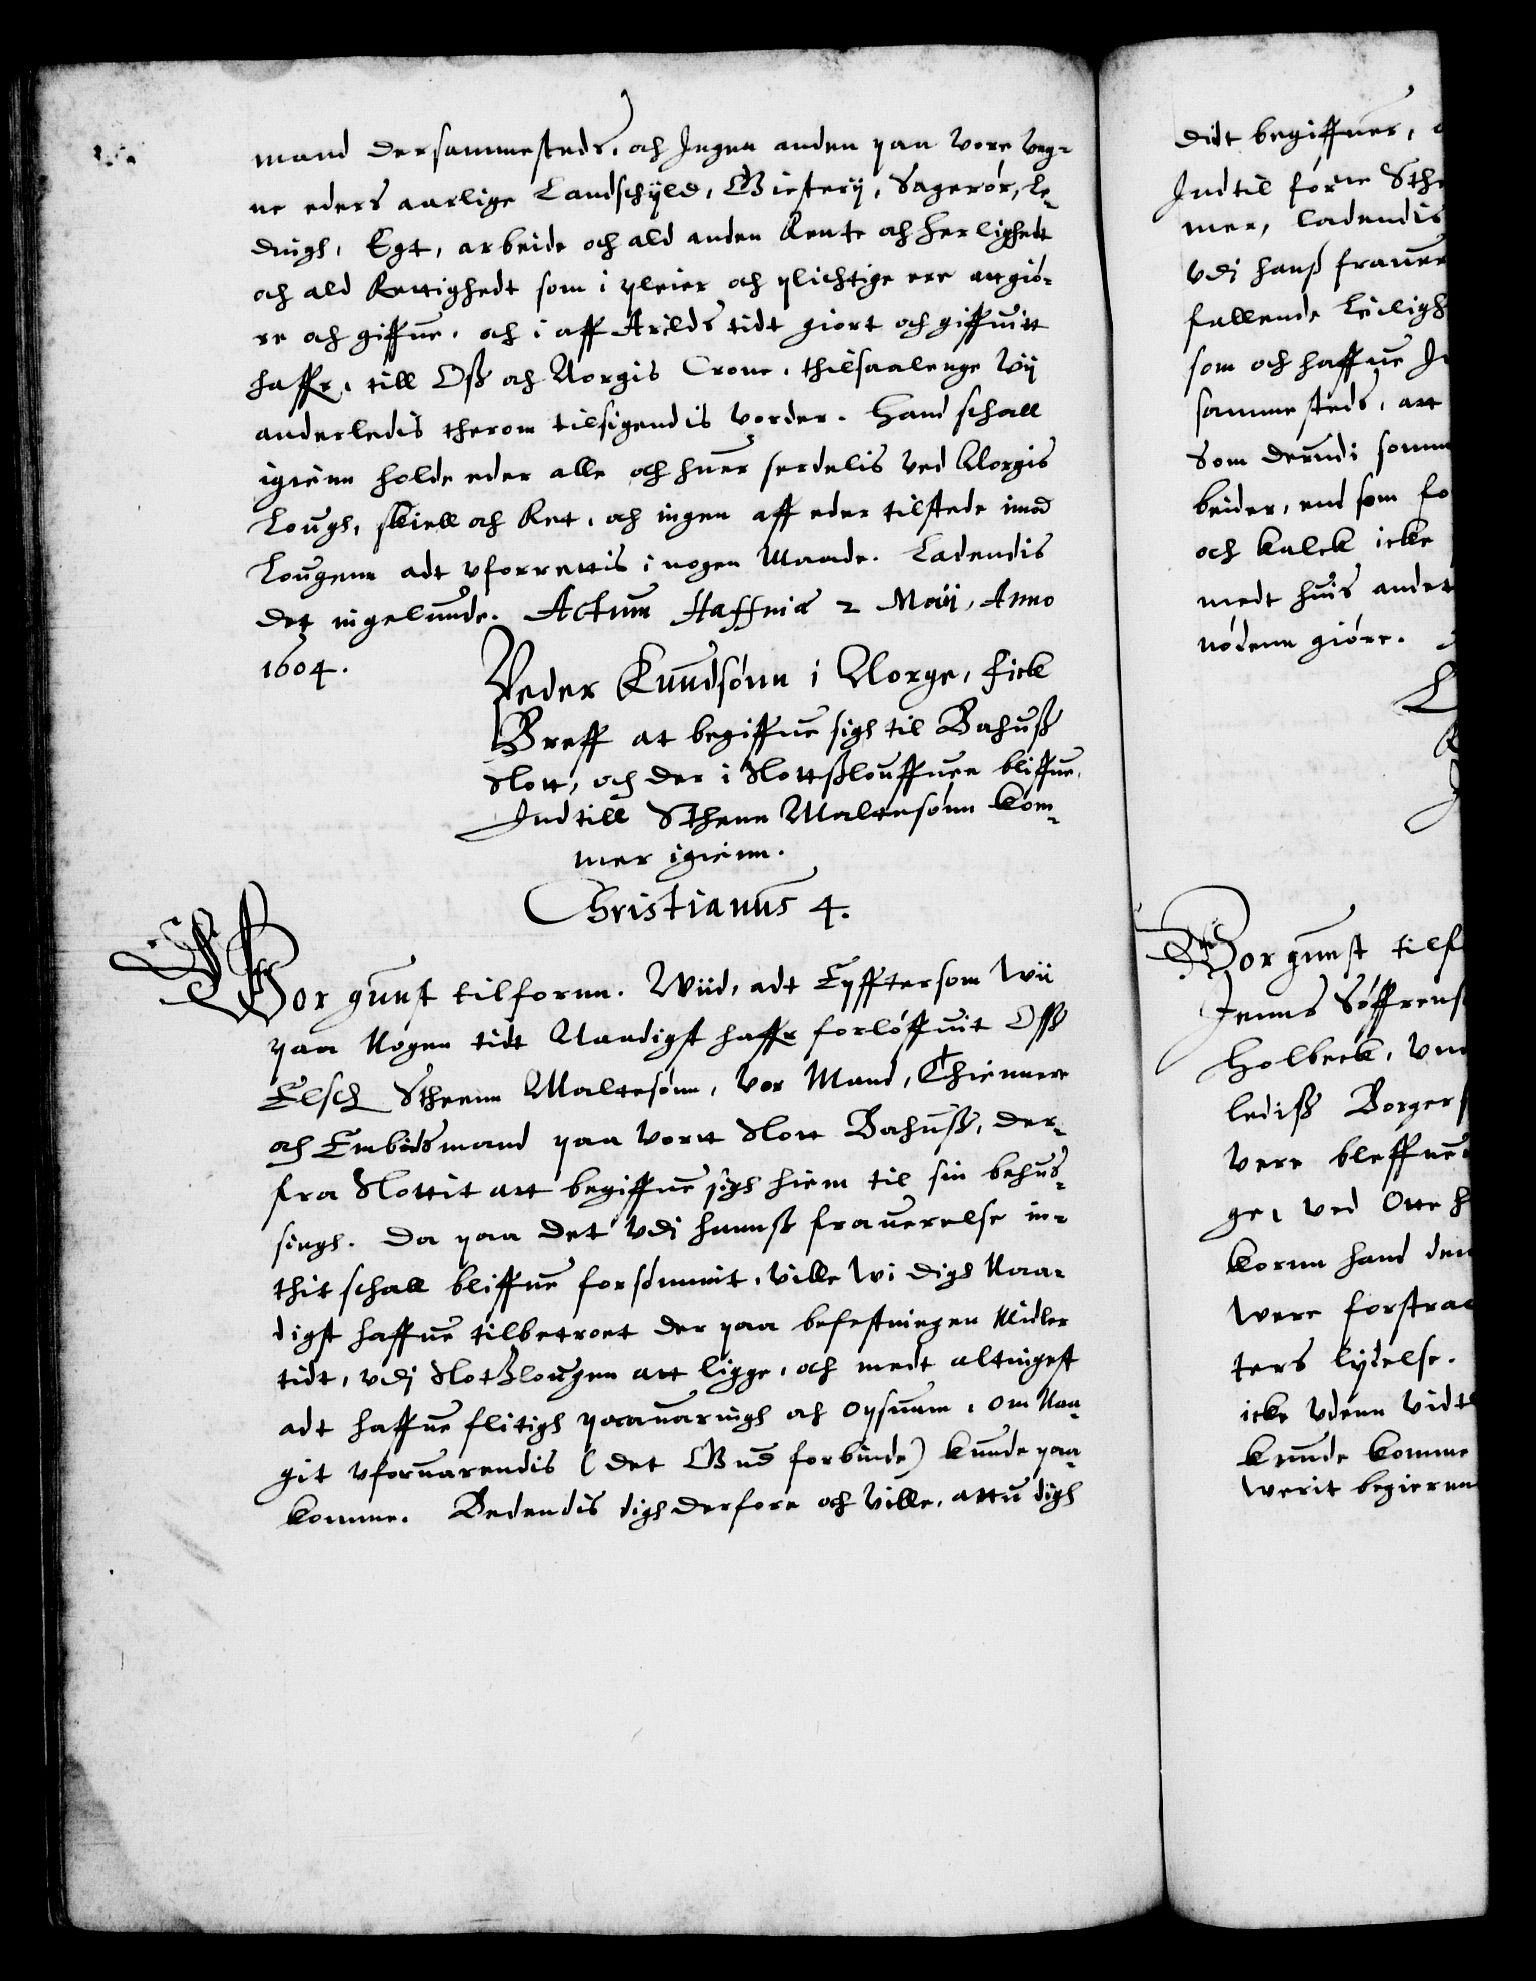 mand dersammesteds, och Ingen anden paa vore veg-
ne eders aarlige Landschyld, Giesterij, Sagerør, Le-
dingh, Egt, arbeide och ald anden Rente och herlighedt
och ald Rettighedt som i pleier och plichtige ere att giø-
re och giffue, och i aff Arilds tidt giort och giffuitt
haffr, till Oss och Norgis Crone, thilsaalenge Wij
anderledis therom tilsigendis vorder. Hand schall
igienn holde eder alle och huer serdelis ved Norgis
Lough, skiell och Ret, och ingen aff eder tilstede imod
Lougenn adt vforrettis i nogen Maade. Ladendis
det ingelunde. Actum Haffniæ 2 Maij, Anno
1604.
Peder Knudsønn i Norge, fick
Breff at begiffue sigh til Bahuss
Slott, och der i Slottsslouffuen bliffue,
Indtill Sthenn Maltesønn kom-
mer igienn.
Christianus 4.
Vor gunst tilfornn. Wiid, adt Effttersom Wii
paa Nogen tidt Naadigst haffr forløffuit Oss
Elsch Stheenn Maltesønn, vor Mand, Thiennere
och Embidsmand paa vortt Slott Bahuss, der-
fra Slottit att begiffue sigh hiem til sin behus-
singh. Da paa det vdj hannss frauerelse in-
thit schall bliffue forsømmit, ville wi digh Naa-
digst haffue tilbetroet der paa befestningen Midler
tidt, vdj Slotsslougen att ligge, och medt altingest
adt haffue flitigh paauaringh och opsuun, om Naa-
git vforuarendis (det Gud forbiude) kunde paa-
komme. Bedendis digh derfore och ville, attu digh
didt begiffuer,
Indtil førne Sthe
mer, ladendis
vdj hanss frauer
fallende leiligh
som och haffue
samme steds, att
Som derudi somm
beider, end som fo
och kalck icke
medt huis andet
nødenn giøre.
Vor gunst tilf
Jenns Søffrens
Holbeck, vn
lediss Borgers
vere bleffue
ge, ved Otte H
kornn hand den
were forstrac
ters lydelse.
icke vdenn vidt
kunde komme
werit begieren